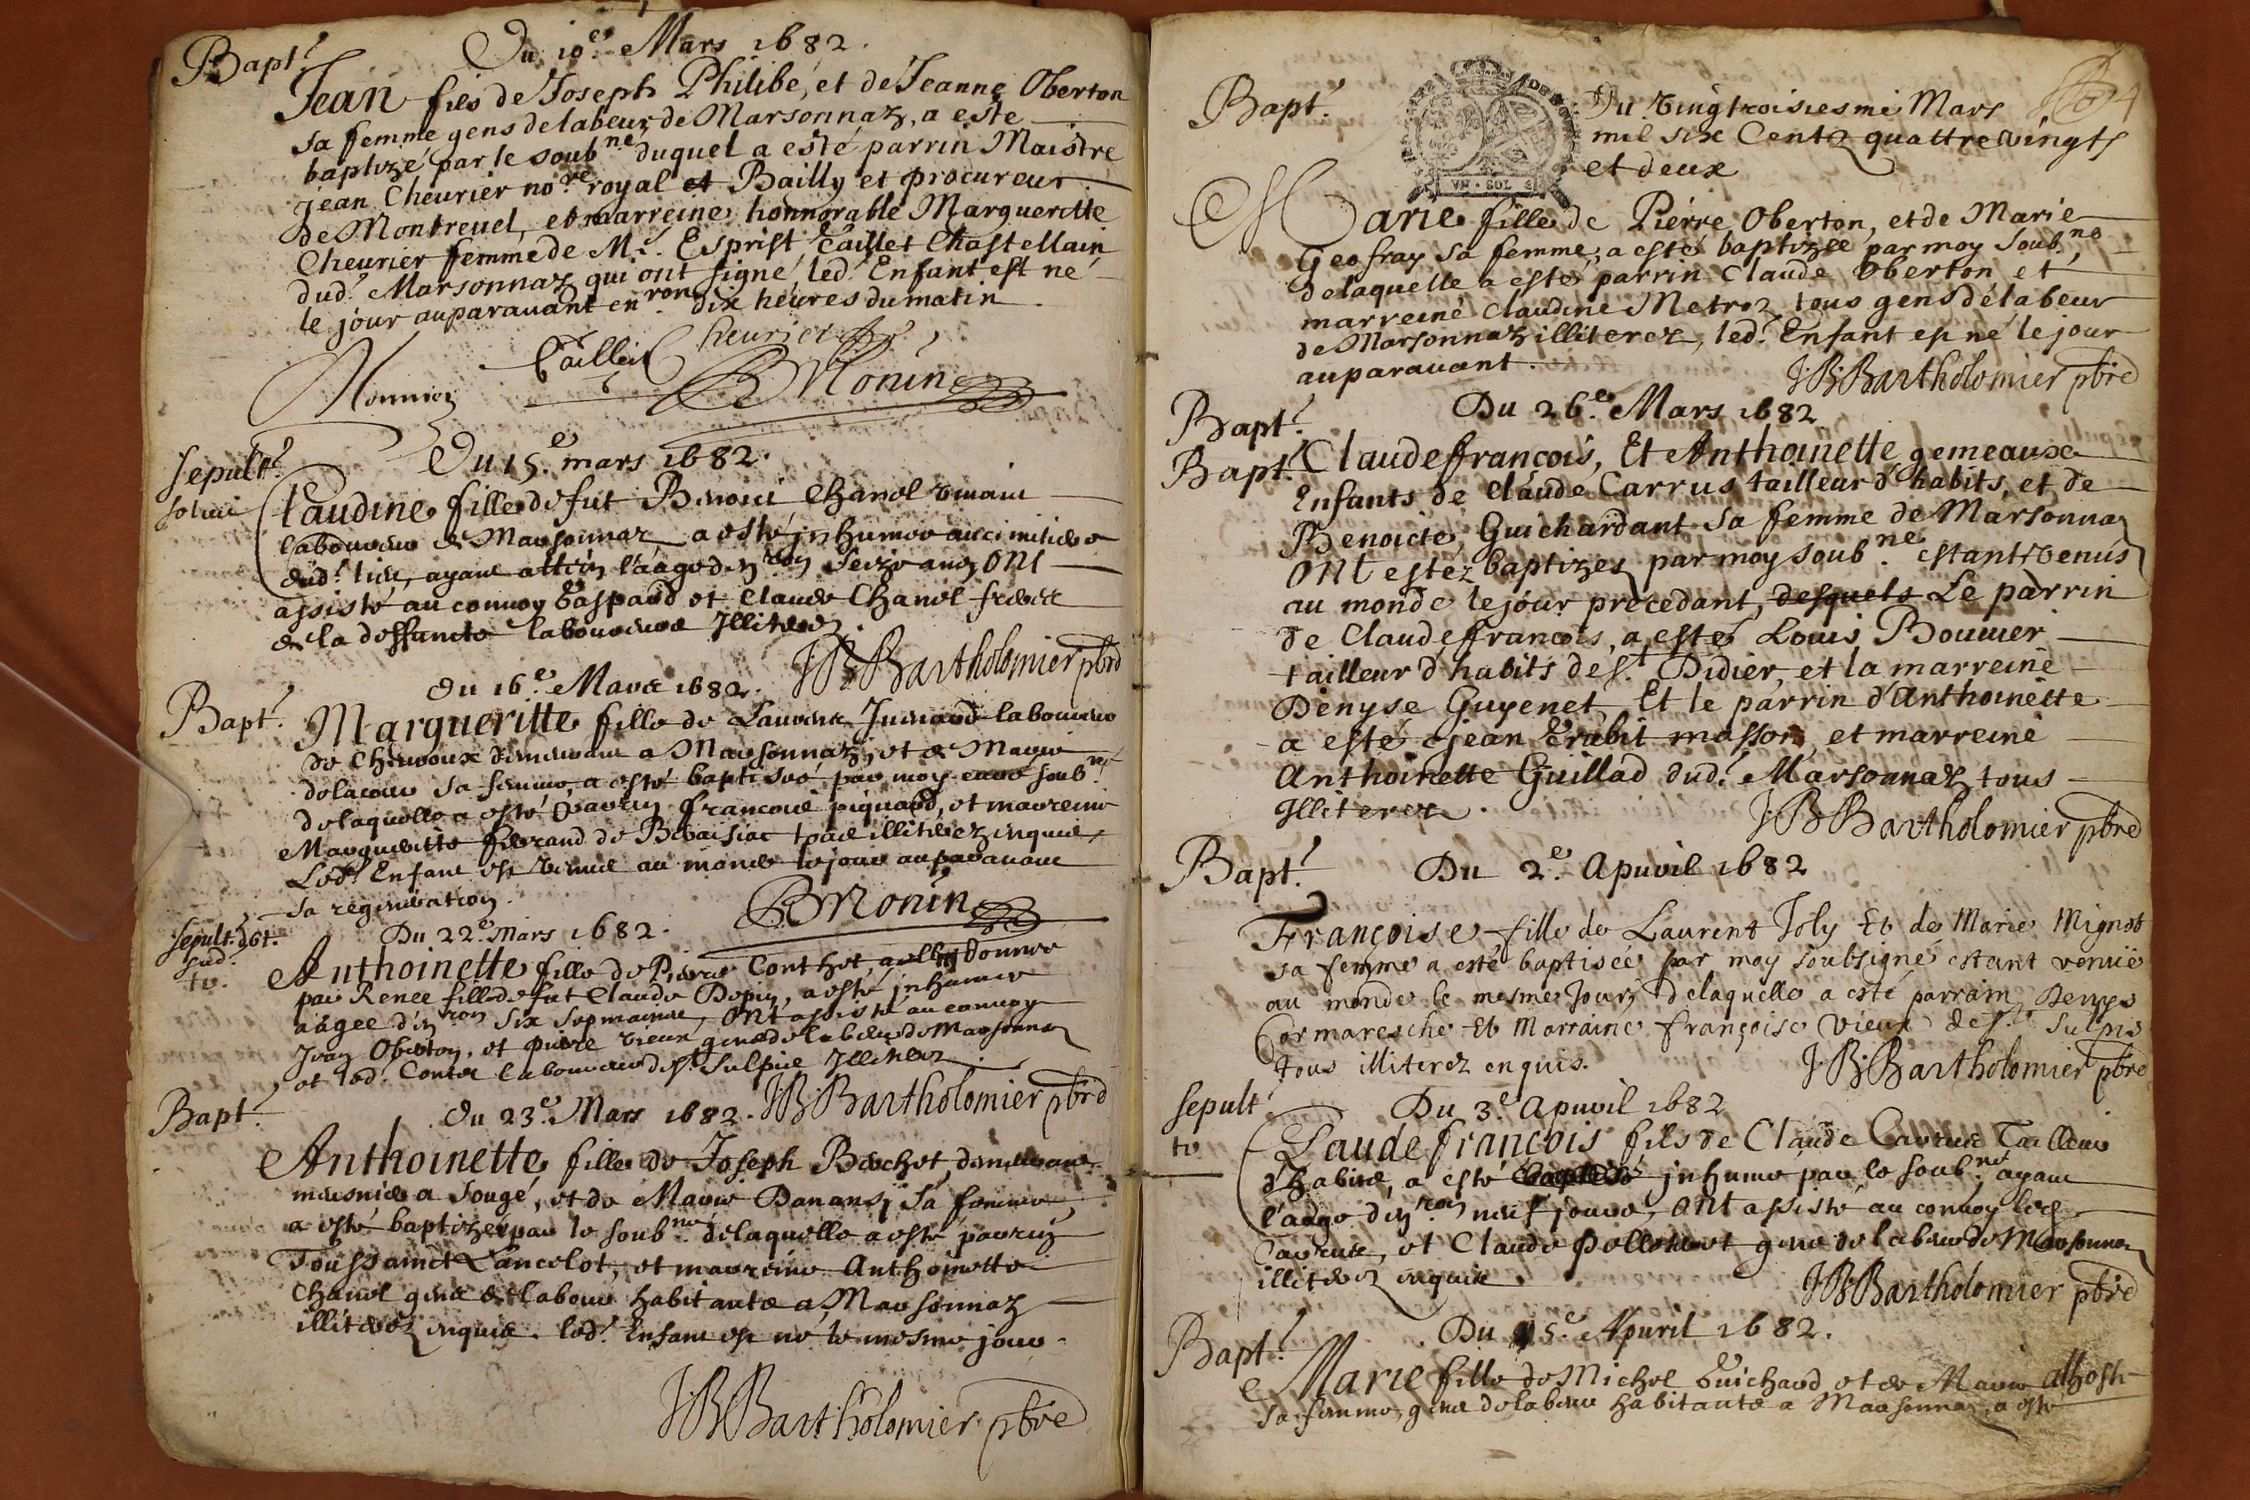 Bapt.e
Du 10.e Mars 1682.
Jean fils de Joseph Philibé, et de Jeanne Oberton
sa femme gens de labeur de Marsonnaz, a esté
baptizé par le soub.né duquel a esté parrin Maistre
jean Cheurier no.re royal et Bailly et procureur
de Montreuel, et marreine honnorable Margueritte
Cheurier femme de M.e Esprist Caillet Chastellain
dud.t Marsonnaz qui ont signé, led.t Enfant est né
le jour auparauant en.ron dix heures du matin.
Caillet Cheurier
Monnier BMonin
Sepult.e
Du 15.e mars 1682.
Claudine fille de fut Benoict Chanel viuant
laboureur de Marsonnaz a esté jnhumée au cimitiere
dud.t lieu, ayant attein l'aage d'en.ron seize ans ont
assisté au conuoy Gaspard et Claude Chanel freres
de la deffuncte laboureurs Illiterez.
JB Bartholomier pbre
Bapt.e
Du 16.e Mars 1682.
Margueritte fille de Laurent Juenard laboureur
de Cheuroux demeurant a Marsonnaz, et de Marie
delacour sa femme, a esté baptisée par moy curé soub.né
de laquelle a esté parrin francois piquard, et marreine
Margueritte ferrand de Beraisiat tous illiterez enquis,
Led.t Enfant est venue au monde le jour auparauant
sa regeneration.
BMonin
Sepult.
Du 22.e Mars 1682.
Anthoinette fille de Pierre Conthet, a elle donnée
par Renee fille de fut Claude Depin, a esté jnhumée
aagee d'en.ron six sepmaines, ont assisté au conuoy
Jean Oberton, et pierre vieux gens de labeur de Marsonna
et led. Contet laboureur de S.t Sulpice Illiterez.
JB Bartholomier pbre
Bapt.e
Du 23.e Mars 1682.
Anthoinette fille de Joseph Bochet, demeurant
meusnier a Sougé, et de Marie Danansj sa femme,
a esté baptizee par le soub.né de laquelle a esté parrin
Toussainct Lancelot, et marreine Anthoinette
Chanel gens de labeur habitants a Marsonnaz
illiterez enquis. led.t Enfant est né le mesme jour.
JB Bartholomier pbre
4
Bapt.e
VN SOL
Du vingtroisiesme Mars
mil six Centz quattre vingts
et deux
Marie fille de Pierre Oberton, et de Marie
Geofray sa femme, a esté baptizee par moy soub.né
de laquelle a esté parrin Claude Oberton et
marreine Claudine Metroz, tous gens de labeur
de Marsonnaz illiterez, led.t Enfant est né le jour
auparauant.
J.B. Bartholomier pbre
Du 26.e Mars 1682
Bapt.e
Bapt.e
Claude francois, Et Anthoinette gemeaux
Enfants de Claude Carrus tailleur d'habits, et de
Benoicte Guichardant sa femme de Marsonnaz
ont estez baptizez par moy soub.né estant venus
au monde le jour precedant, desquels Le parrin
de Claude francois, a esté Louis Bouuier
tailleur d'habits de S.t Didier, et la marreine
Denyse Guyenet, Et le parrin d'Anthoinette
a esté jean Erabit masson, et marreine
Anthoinette Guillad dud.t Marsonnaz tous
Illiterez.
JB Bartholomier pbre
Bapt.e
Du 2.e Apuril 1682
Françoise fille de Laurent Joly Et de Marie Mignot
sa femme a esté baptisée par moy soubsigné estant venuë
au monde le mesme Jour, delaquelle a esté parrain Denys
Cormaresche Et Marraine françoise Vieux de S.t Sulpis
tous illiterez enquis.
J.B. Bartholomier pbre
Sepult.e
Du 3.e Apuril 1682
Claude francois fils de Claude Carrus Tailleur
d'habits, a esté jnhumé par le soub.né ayant
l'aage d'en.ron neuf jours, ont assisté au conuoy led.
Carrus, et Claude Pelletieret gens de labeur de Marsonnaz
illiterez enquis.
JB Bartholomier pbre
Bapt.e
Du 15.e Apuril 1682.
Marie fille de Michel Guichard et de Marie alhoste
sa femme, gens de labeur habitants a Marsonnaz, a esté